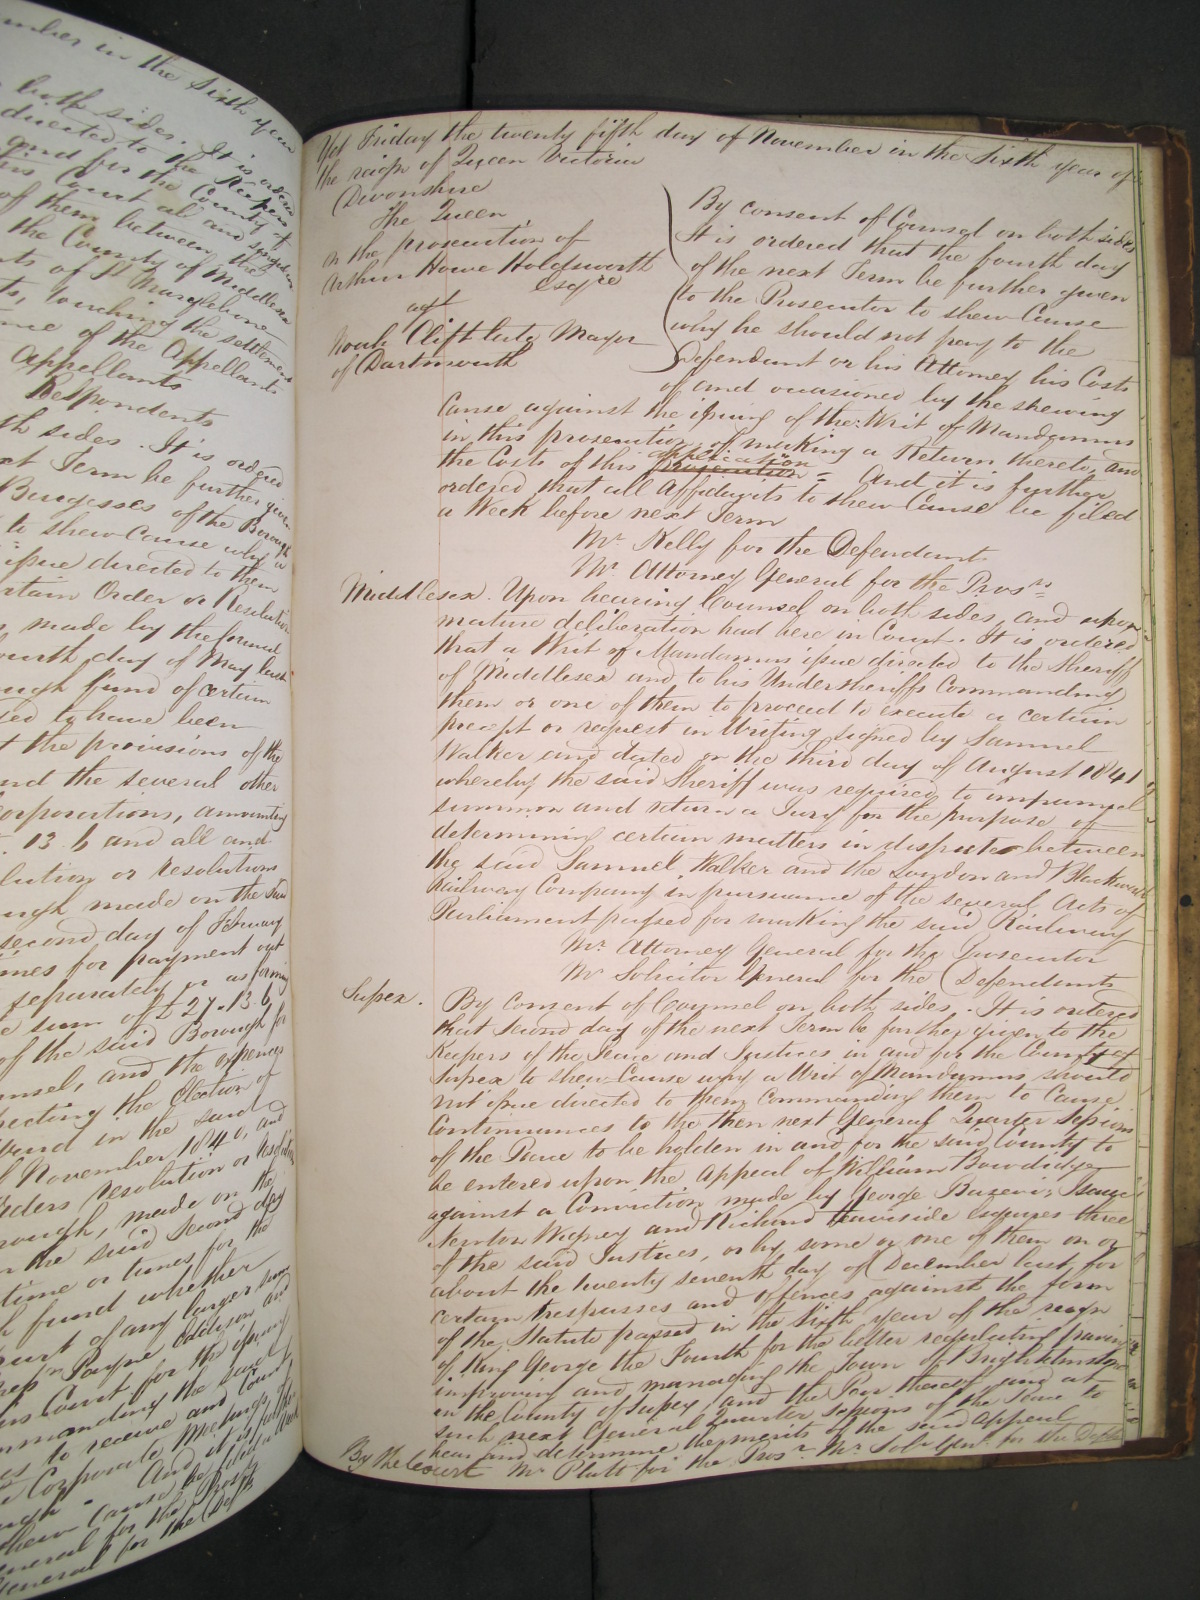 mber in the Sixth year
both sides. It is ordered
directed to the Keepers
and for the County of
this Court all and singular
of them between the
the County of Middlesex
nts of St Marylebone
ts, touching the settlement
nce of the Appellants
Appellants
Respondents
th sides. It is ordered
xt Term be further given
Burgesses of the Borough
to shew Cause why a
issue directed to them
rtain Order or Resolution
made by the former
ourth day of May last
ugh fund of certain
sed to have been
t the provisions of the
and the several other
orporations, amounting
. 13. 6 and all and
lution or resolutions
ugh made on the said
second day of February
imes for payment out
separately or as forming
e sum of £27.13.6
of the said Borough for
unsel, and the expences
pecting the Election of
Ward in the said
of November 1840, and
ders resolution or resolutions
rough, made on the
n the said second day
time or times for the
h fund whether
part of any larger sum
Payne Addison and
is Court for the issuing
mmanding the said
es to receive and count
e Corporate Meetings of
ugh. And it is further
shew Cause be filed a Week
eneral for the Prosr
General for the Defts
Yet Friday the twenty fifth day of November in the Sixth year of
the reign of Queen Victoria
Devonshire
The Queen
on the prosecution of
Arthur Howe Holdsworth
Esqre
agt
Mayor
of Dartmouth
By consent of Counsel on both sides
It is ordered that the fourth day
of the next Term be further given
to the Prosecutor to shew Cause
why he should not pay to the
Defendant or his Attorney his Costs
of and occasioned by the shewing
Cause against the issuing of the Writ of Mandamus
in this prosecution, of making a Return thereto, and
the Costs of this prosecution application - And it is further
ordered that all Affidavits to shew Cause be filed
a Week before next Term
Mr Kelly for the Defendants
Mr Attorney General for the Prosrs
Middlesex. Upon hearing Counsel on both sides, and upon
mature deliberation had here in Court. It is ordered
that a Writ of Mandamus issue directed to the Sheriff
of Middlesex and to his Undersheriffs Commanding
them or one of them to proceed to execute a certain
precept or request in Writing signed by Samuel
Walker and dated on the third day of August 1841
whereby the said Sheriff was required to impannel
summon and return a Jury for the purpose of
determining certain matters in dispute between
the said Samuel Walker and the London and Blackwall
Railway Company in pursuance of the several Acts of
Parliament passed for making the said Railway
Mr Attorney General for the Prosecutor
Mr Solicitor General for the Defendants
Sussex. By Consent of Counsel on both sides. It is ordered
that Second day of the next Term be further given to the
Keepers of the Peace and Justices in and for the County of
Sussex to shew Cause why a Writ of Mandamus should
not issue directed to them Commanding them to Cause
Continuances to the then next General Quarter Sessions
of the Peace to be holden in and for the said County to
be entered upon the Appeal of William Bowdidge
against a Conviction made by George Basevi, Isaac
Newton Wigney and Richard Heaviside esquires three
of the said Justices, or by some or one of them on or
about the twenty seventh day of December last, for
certain trespasses and offences against the form
of the Statute passed in the Sixth year of the reign
of King George the Fourth for the better regulating paving
improving and managing the Town of Brighthelmston
in the County of Sussex, and the Poor thereof and at
such next General Quarter Sessions of the Peace to
hear and determine the merits of the said Appeal
By the Court Mr Platt for the Prosr Mr Solr Genl for the Defts